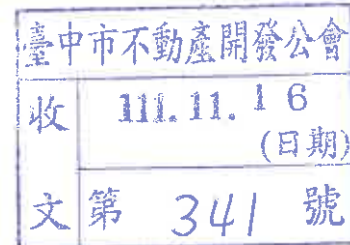 臺中市不動產開發公會
收文
111.11.16
(日期)
第 341 號